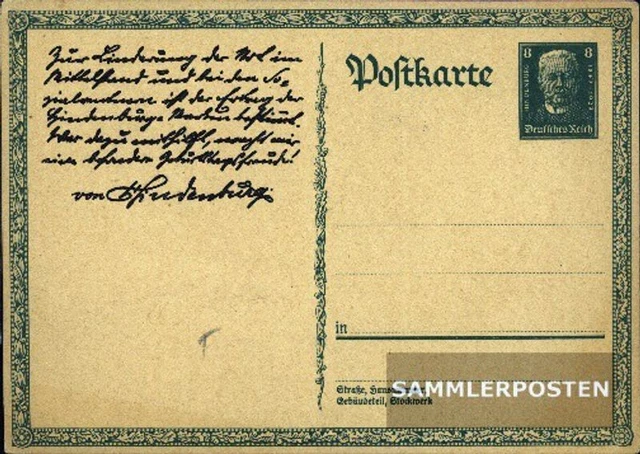 Zur Linderung der Not im
Mittelstand und bei den So-
zialrentnern ist der Ertrag der
Hindenburg-Karten bestimmt.
Wer dazu mithilft, macht mir
eine besondere Geburtstagsfreude!
von Hindenburg.
Postkarte
8 8
Deutsches Reich
in
Straße, Hausnummer,
Gebäudeteil, Stockwerk
SAMMLERPOSTEN